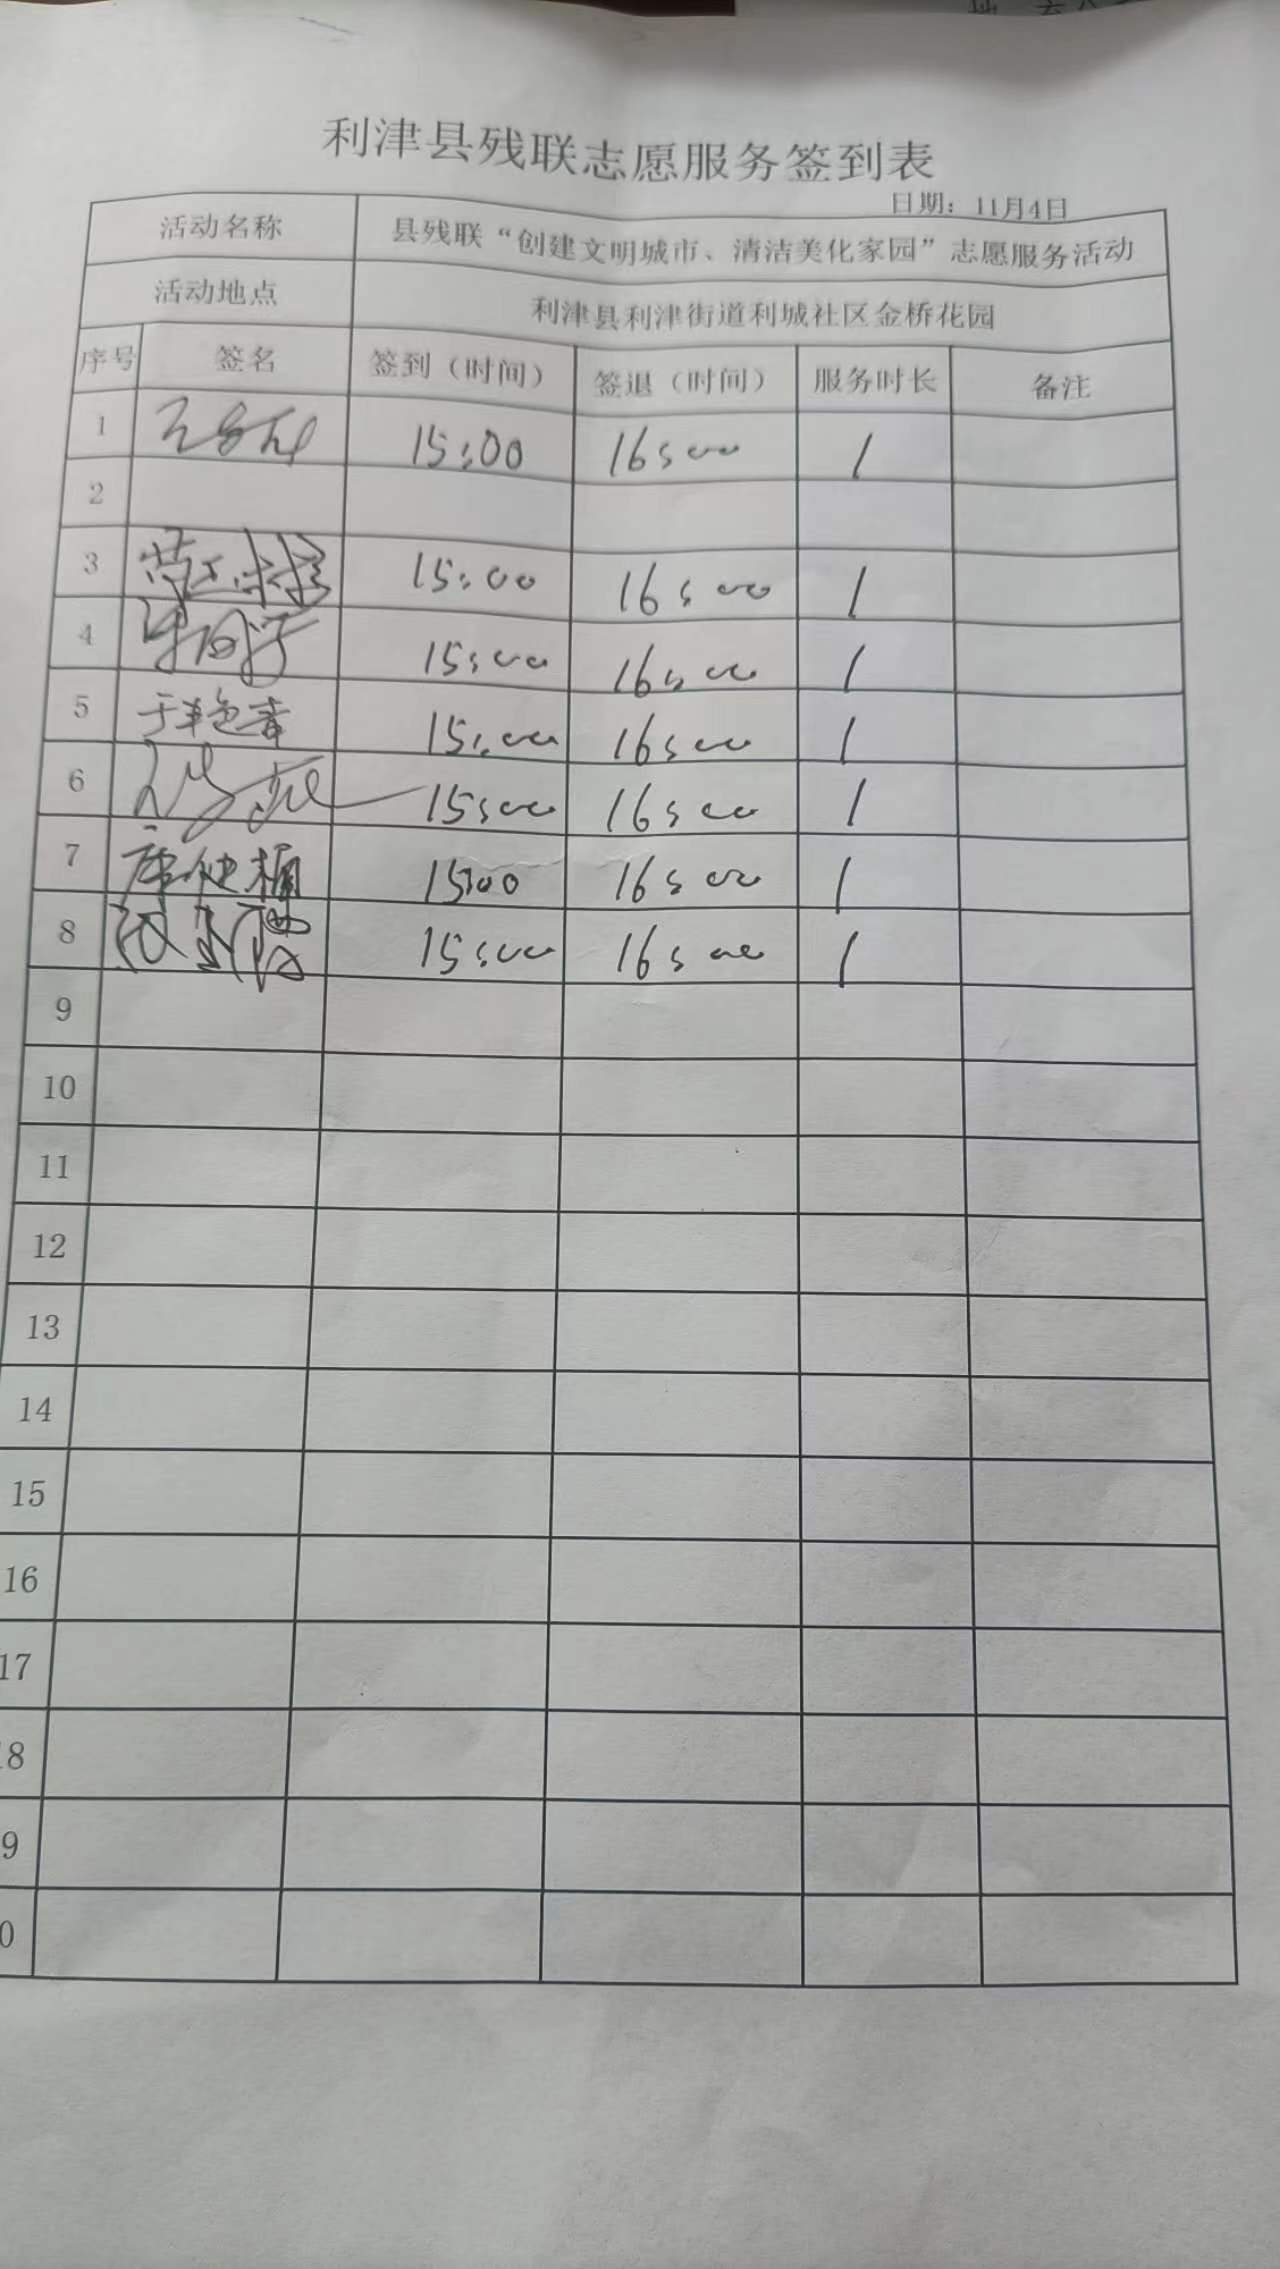 利津县残联志愿服务签到表
日期：11月4日
活动名称 县残联“创建文明城市、清洁美化家园”志愿服务活动
活动地点 利津县利津街道利城社区金桥花园
序号 签名 签到（时间） 签退（时间） 服务时长 备注
1 15:00 16:00 1
2
3 15:00 16:00 1
4 15:00 16:00 1
5 于艳青 15:00 16:00 1
6 15:00 16:00 1
7 15:00 16:00 1
8 15:00 16:00 1
9
10
11
12
13
14
15
16
17
8
9
0